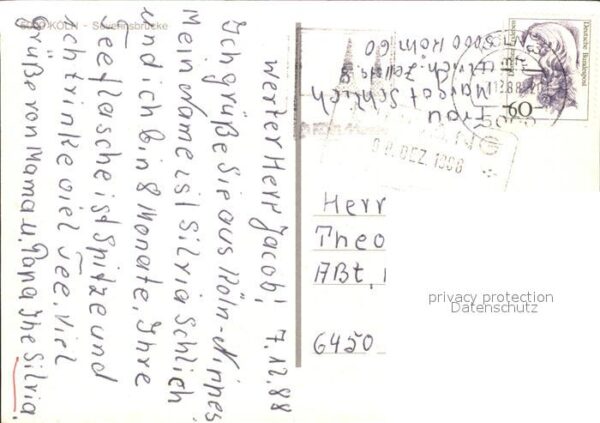 5000 KÖLN - Severinsbrücke
Werter Herr Jacob! 7.12.88
Ich grüße Sie aus Köln-Nippes
Mein Name ist Silvia Schlich
und ich bin 8 Monate, Ihre
Teeflasche ist Spitze und
ich trinke viel Tee. Viel
Grüße von Mama u. Papa Ihr Silvia.
Frau
Margot Schlich
5000 Köln 60
Deutsche Bundespost
60
5000
08. DEZ. 1988
Herr
Theo
Abt.
6450
privacy protection
Datenschutz